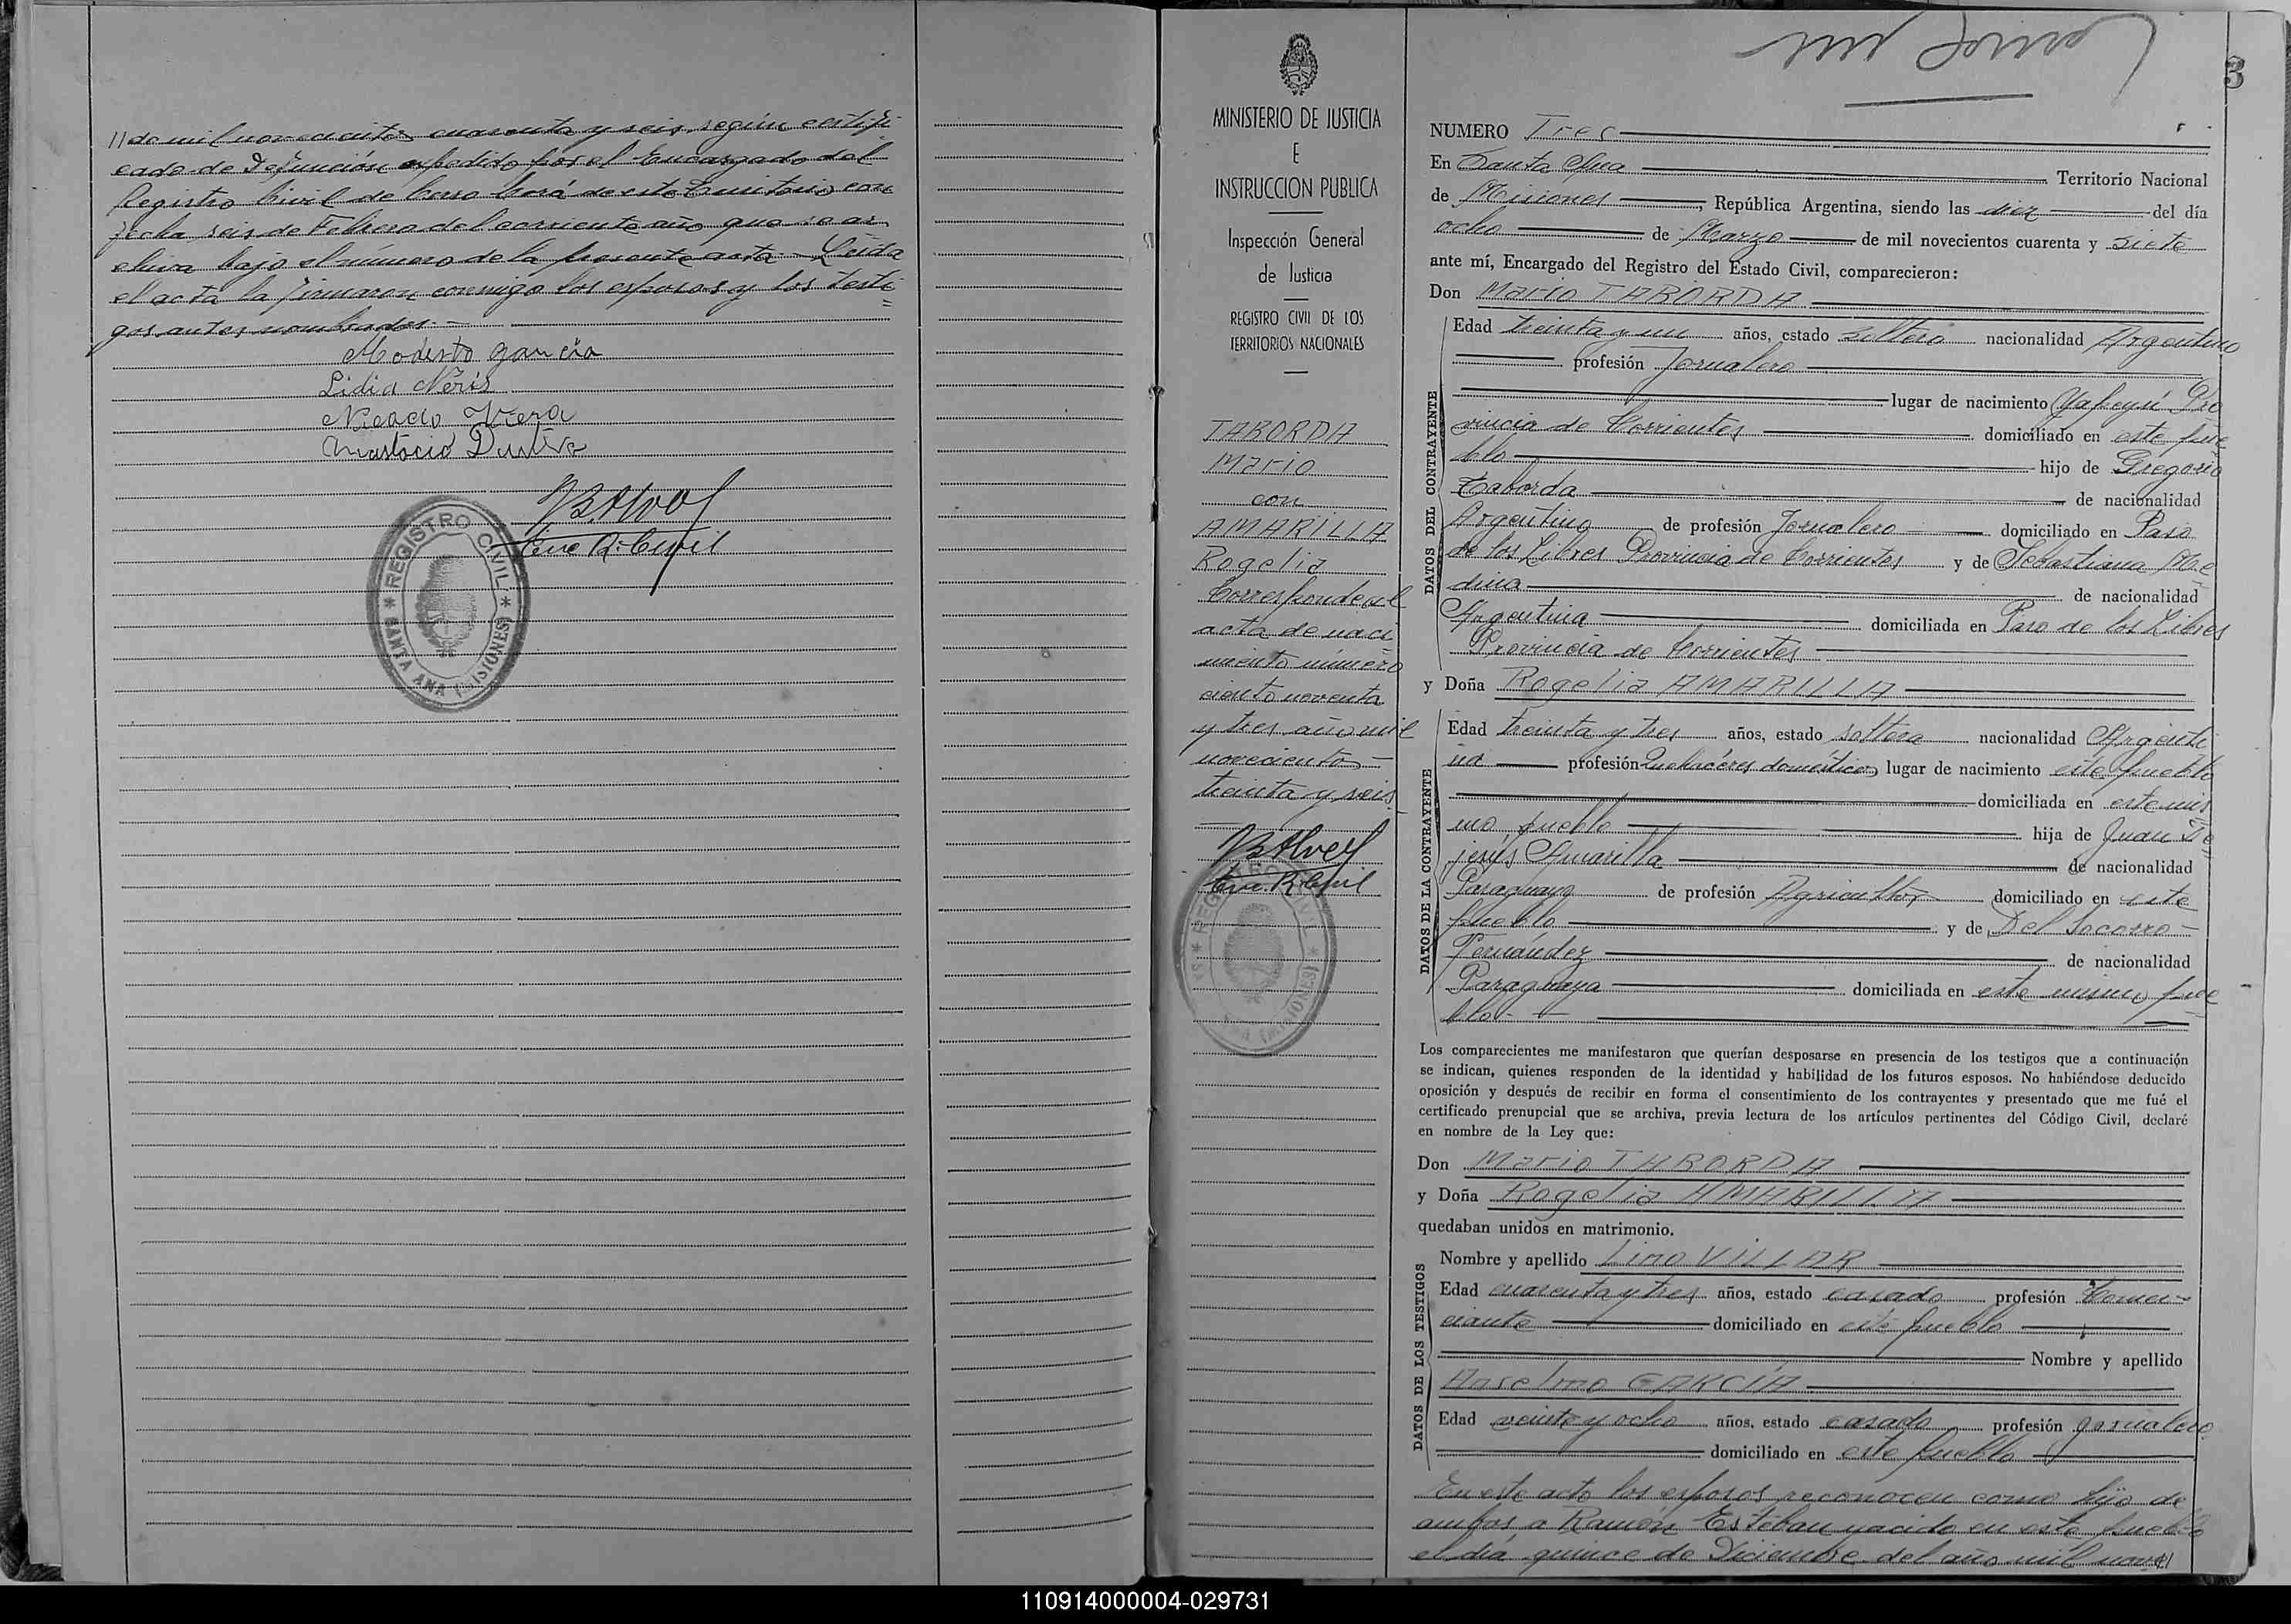 // de mil novecientos cuarenta y seis, según certifi
cado de Defunción expedido por el Encargado del
Registro Civil de Cerro Corá de este Territorio, con
fecha seis de Febrero del corriente año que se ar
chiva bajo el numero de la presente acta.- Leida
el acta la firmaron conmigo los esposos y los testi=
gos antes nombrados.-
Modesto garcia
Lidia Neris
Vera
B. Alvez
Enc. R. Civil
* REGISTRO CIVIL * SANTA ANA (MISIONES)
3
MINISTERIO DE JUSTICIA
E
INSTRUCCION PUBLICA
Inspección General
de Justicia
REGISTRO CIVIL DE LOS
TERRITORIOS NACIONALES
TABORDA
Mario
con
AMARILLA
Rogelia
Corresponde al
acta de naci
miento número
ciento noventa
y tres año mil
novecientos
treinta y seis
B. Alvez
Enc. R. Civil
NUMERO Tres
En Santa Ana Territorio Nacional
de Misiones, República Argentina, siendo las diez del día
ocho de Marzo de mil novecientos cuarenta y siete
ante mí, Encargado del Registro del Estado Civil, comparecieron:
Don Mario TABORDA
DATOS DEL CONTRAYENTE
Edad treinta y un años, estado soltero nacionalidad Argentino
profesión Jornalero
lugar de nacimiento Yapeyú Pro
vincia de Corrientes domiciliado en este pue
blo hijo de Gregorio
Taborda de nacionalidad
Argentino de profesión Jornalero domiciliado en Paso
de los Libres Provincia de Corrientes y de Sebastiana Me
dina de nacionalidad
Argentina domiciliada en Paso de los Libres
Provincia de Corrientes
y Doña Rogelia AMARILLA
DATOS DE LA CONTRAYENTE
Edad treinta y tres años, estado soltera nacionalidad Argenti
na profesión Quehacéres domésticos lugar de nacimiento este pueblo
domiciliada en este mis
mo pueblo hija de Juan De
jesús Amarilla de nacionalidad
Paraguayo de profesión Agricultor domiciliado en este
pueblo y de Del Socorro
Fernández de nacionalidad
Paraguaya domiciliada en este mismo pue
blo.-
Los comparecientes me manifestaron que querían desposarse en presencia de los testigos que a continuación
se indican, quienes responden de la identidad y habilidad de los futuros esposos. No habiéndose deducido
oposición y después de recibir en forma el consentimiento de los contrayentes y presentado que me fué el
certificado prenupcial que se archiva, previa lectura de los artículos pertinentes del Código Civil, declaré
en nombre de la Ley que:
Don Mario TABORDA
y Doña Rogelia AMARILLA
quedaban unidos en matrimonio.
DATOS DE LOS TESTIGOS
Nombre y apellido Lino VILLAR
Edad cuarenta y tres años, estado casado profesión Comer-
ciante domiciliado en este pueblo
Nombre y apellido
Anselmo GARCÍA
Edad veinte y ocho años, estado casado profesión Jornalero
domiciliado en este pueblo
En este acto los esposos reconocen como hijo de
ambos a Ramón Estéban nacido en este pueblo
el día quince de Diciembre del año mil nove//
110914000004-029731